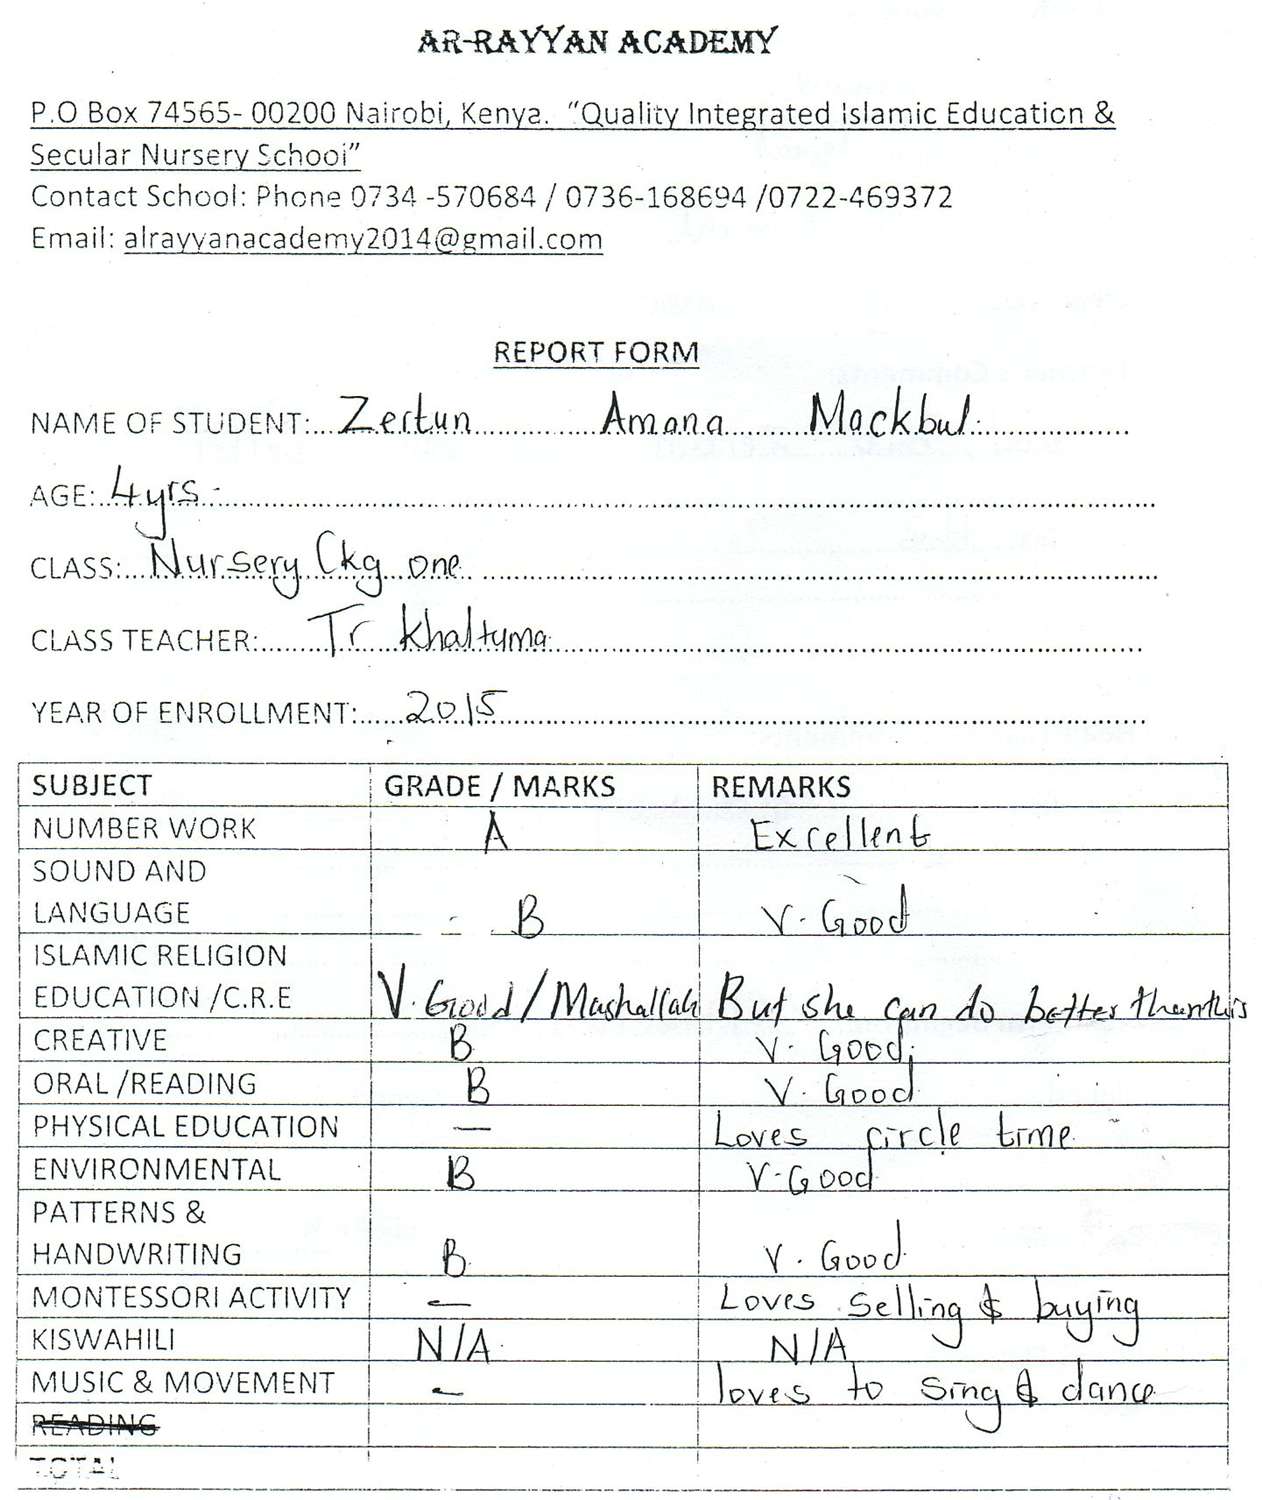 AR-RAYYAN ACADEMY
P.O Box 74565- 00200 Nairobi, Kenya. “Quality Integrated Islamic Education &
Secular Nursery School”
Contact School: Phone 0734 -570684 / 0736-168694 /0722-469372
Email: alrayyanacademy2014@gmail.com
REPORT FORM
NAME OF STUDENT: Zeitun Amana Mackbul.
AGE: 4yrs -
CLASS: Nursery Ckg one
CLASS TEACHER: Tr Khaltuma
YEAR OF ENROLLMENT: 2015
SUBJECT GRADE / MARKS REMARKS
NUMBER WORK A Excellent
SOUND AND
LANGUAGE B V. Good
ISLAMIC RELIGION
EDUCATION /C.R.E V. Good / Mashallah But she can do better than this
CREATIVE B V. Good.
ORAL /READING B V. Good
PHYSICAL EDUCATION — Loves circle time.
ENVIRONMENTAL B V. Good
PATTERNS &
HANDWRITING B V. Good
MONTESSORI ACTIVITY — Loves selling & buying
KISWAHILI N/A N/A
MUSIC & MOVEMENT — loves to sing & dance
READING
TOTAL